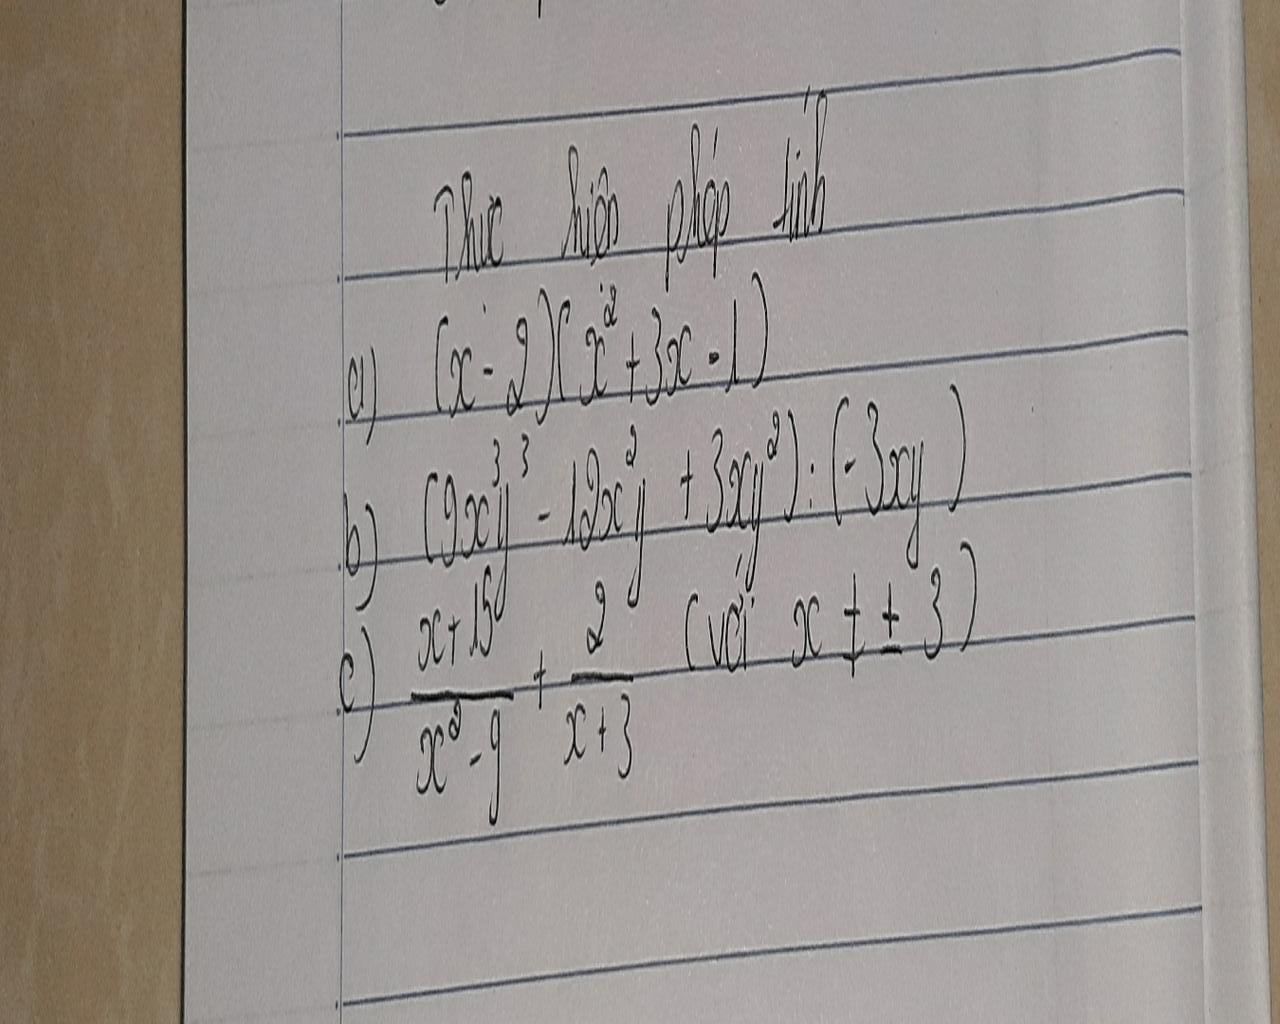 Thực hiện phép tính
a) (x - 2)(x² + 3x - 1)
b) (9x³y³ - 12x²y + 3xy²) : (-3xy)
c) \frac{x+15}{x²-9} + \frac{2}{x+3} (với x ≠ ± 3)